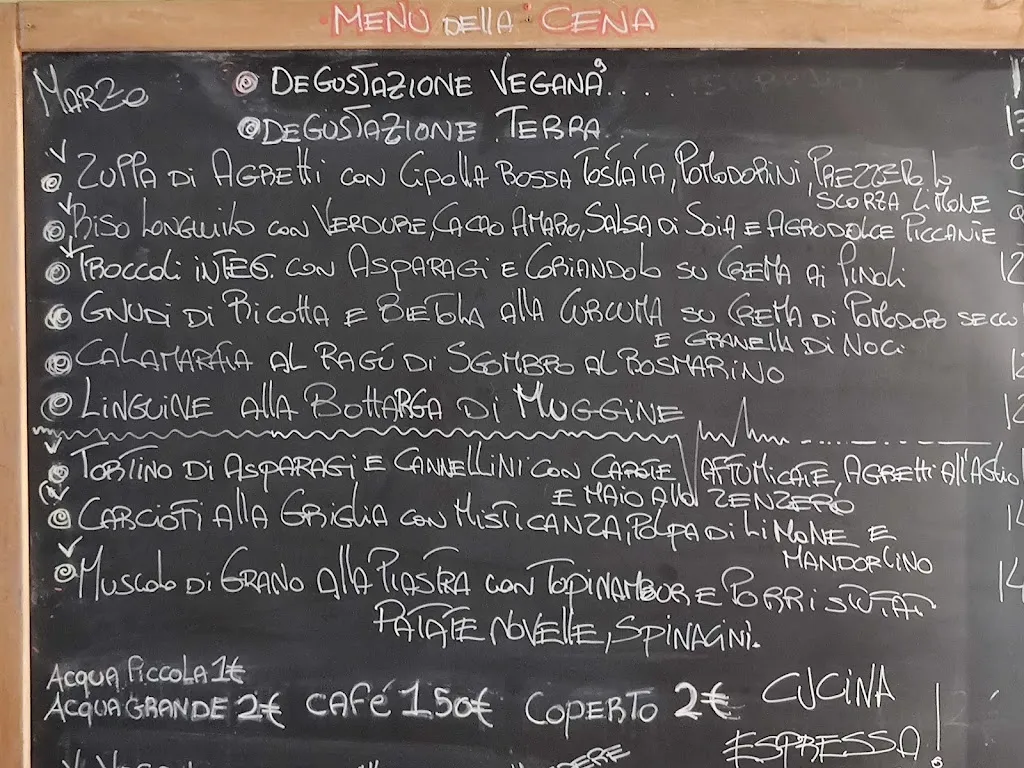 MENÙ DELLA CENA
MARZO
DEGUSTAZIONE VEGANA.....
DEGUSTAZIONE TERRA...
ZUPPA DI AGRETTI CON CIPOLLA ROSSA TOSTATA, POMODORINI, PREZZEMOLO
SCORZA LIMONE
RISO LONGUILO CON VERDURE, CACAO AMARO, SALSA DI SOIA E AGRODOLCE PICCANTE
TROCCOLI INTEG. CON ASPARAGI E CORIANDOLO SU CREMA AI PINOLI
GNUDI DI RICOTTA E BIETOLA ALLA CURCUMA SU CREMA DI POMODORO SECCO
E GRANELLA DI NOCI
CALAMARATA AL RAGÚ DI SGOMBRO AL ROSMARINO
LINGUINE ALLA BOTTARGA DI MUGGINE
TORTINO DI ASPARAGI E CANNELLINI CON CAROTE AFFUMICATE, AGRETTI ALL'AGLIO
E MAIO ALLO ZENZERO
(V) CARCIOFI ALLA GRIGLIA CON MISTICANZA, POLPA DI LIMONE E
MANDORLINO
MUSCOLO DI GRANO ALLA PIASTRA CON TOPINAMBUR E PORRI STUFATI
PATATE NOVELLE, SPINACINI.
ACQUA PICCOLA 1€
ACQUA GRANDE 2€ CAFÉ 1.50€ COPERTO 2€ CUCINA
ESPRESSA!